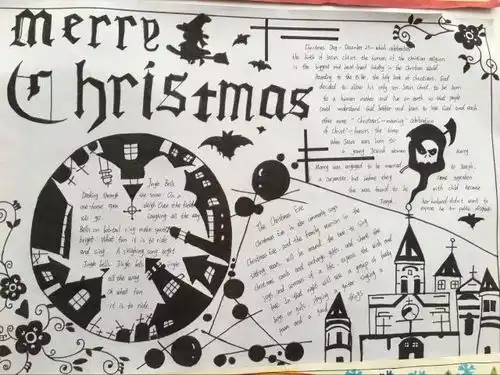 Merry
Christmas
Christmas Day - December 25 - which celebrates
the birth of Jesus Christ, the founder of the christian religion
is the biggest and best-loved holiday in the Christian world.
According to the Bible, the holy book of Christians, God
decided to allow his only son, Jesus Christ, to be born
to a human mother and live on earth so that people
could understand God better and learn to love God and each
other more. "Christmas" - meaning "celebration
of Christ" - honors the time
when Jesus was born to
a young Jewish woman Mary.
Marry was engaged to be married to Joseph,
a carpenter, but before they came together,
she was found to be with child. Because
Joseph, her husband didn't want to
expose her to public disgrace
Jingle Bells
Dashing through the snow. On a
one-horse open sleigh Over the fields
we go. Laughing all the way
Bells on bob-tail ring make spirits
bright What fun it is to ride
and sing A sleighing song tonight
Jingle bells Jingle bells Jingle
all the way
oh what fun
it is to ride.
The Christmas Eve
Christmas Eve is also commonly says
Christmas Eve and the family reunion in the
sitting room, will be around the tree to sing
Christmas carols and exchange gifts and share the
joys and sorrows of a life express the wish and
love. In that night will see a group of lovely
boys or girls playing a guitar singing a